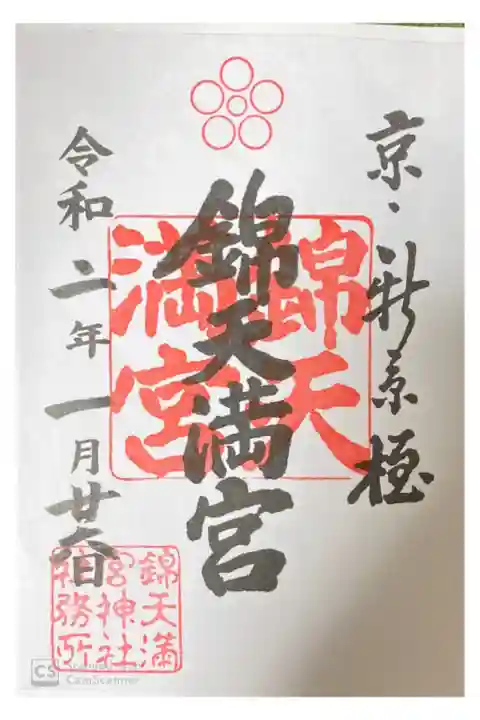 京・新京極
錦天満宮
錦天
満宮
令和二年一月廿六日
錦天満
宮神社
社務所
CS
CamScanner